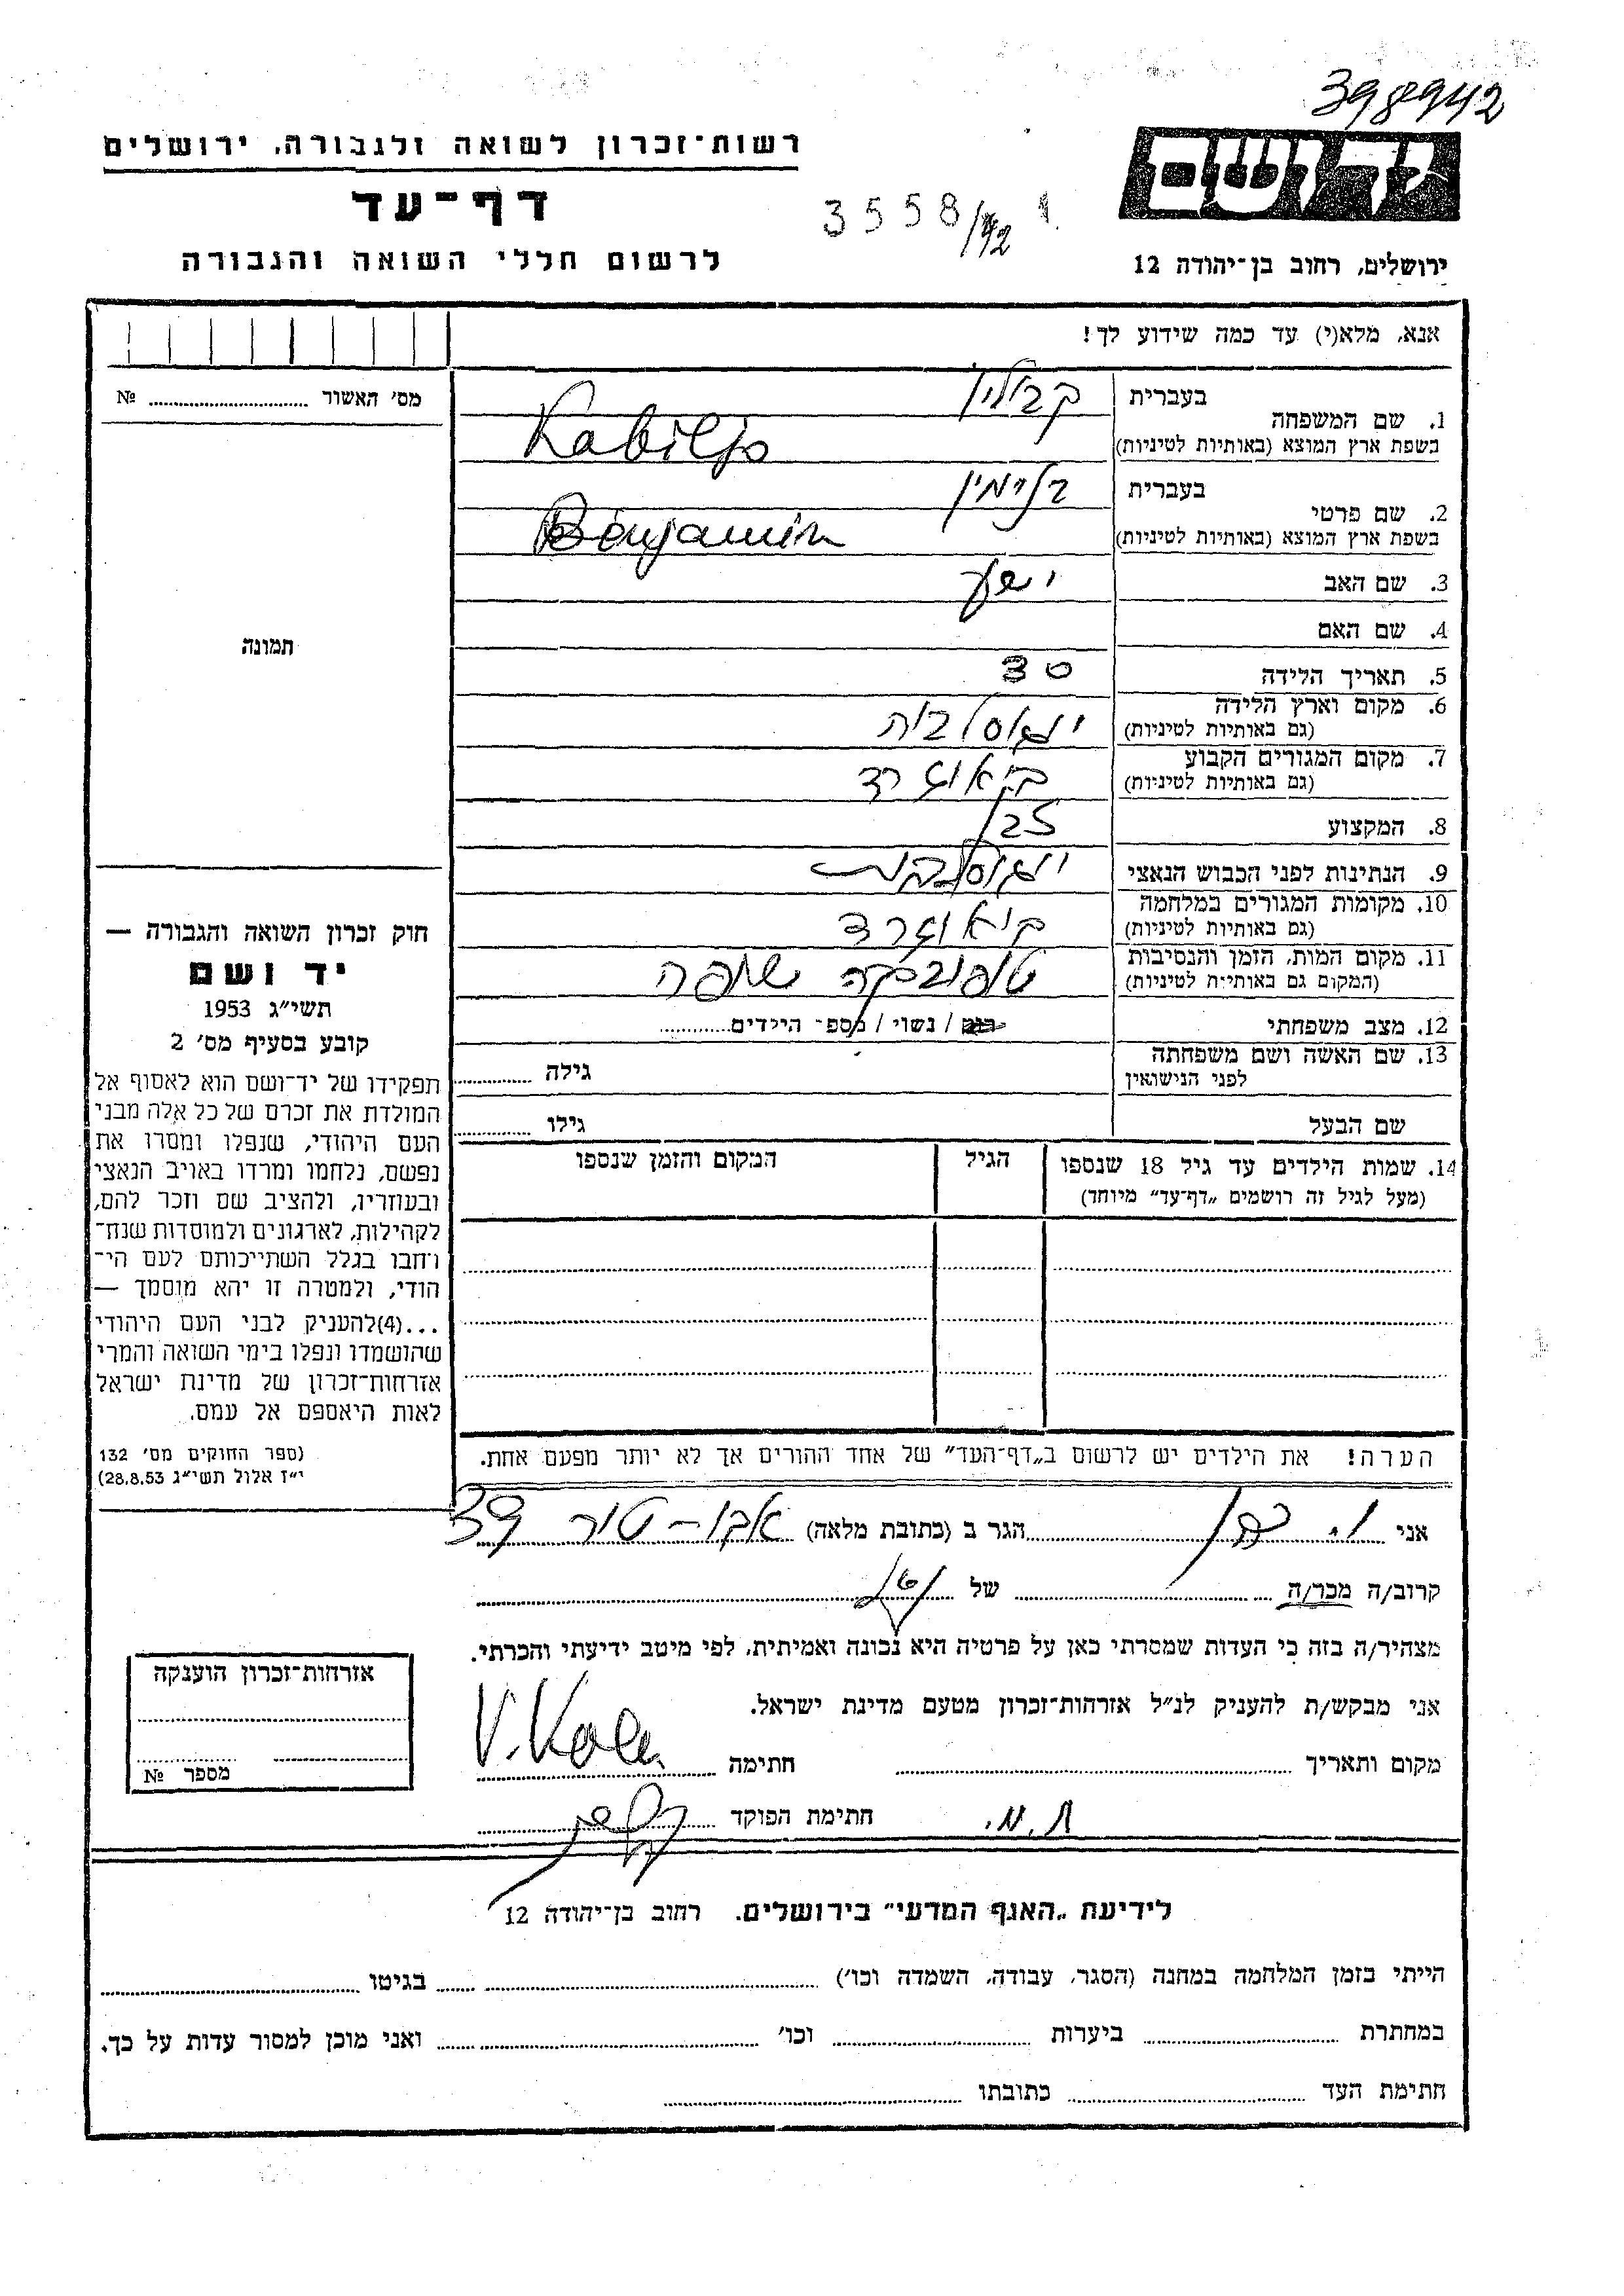 398942
רשות־זכרון לשואה ולגבורה, ירושלים
יד ושם
דף־עד
3558/42 1
לרשום חללי השואה והגבורה
ירושלים, רחוב בן־יהודה 12
אנא, מלא(י) עד כמה שידוע לך!
מס׳ האשור №
תמונה
1. שם המשפחה
בעברית קבוליו
בשפת ארץ המוצא (באותיות לטיניות) Kabiljo
2. שם פרטי
בעברית בנימין
בשפת ארץ המוצא (באותיות לטיניות) Benjamin
3. שם האב ישע
4. שם האם
5. תאריך הלידה 30
6. מקום וארץ הלידה יוגוסלביה
(גם באותיות לטיניות)
7. מקום המגורים הקבוע ביאוגרד
(גם באותיות לטיניות)
8. המקצוע
9. הנתינות לפני הכבוש הנאצי יוגוסלבית
10. מקומות המגורים במלחמה ביאוגרד
(גם באותיות לטיניות)
11. מקום המות, הזמן והנסיבות טופובסקה שופה
(המקום גם באותיות לטיניות)
12. מצב משפחתי רווק / נשוי / מספר הילדים
13. שם האשה ושם משפחתה גילה
לפני הנישואין
שם הבעל גילו
14. שמות הילדים עד גיל 18 שנספו הגיל המקום והזמן שנספו
(מעל לגיל זה רושמים „דף־עד״ מיוחד)
הערה! את הילדים יש לרשום ב„דף־העד״ של אחד ההורים אך לא יותר מפעם אחת.
חוק זכרון השואה והגבורה —
יד ושם
תשי״ג 1953
קובע בסעיף מס׳ 2
תפקידו של יד־ושם הוא לאסוף אל
המולדת את זכרם של כל אלה מבני
העם היהודי, שנפלו ומסרו את
נפשם, נלחמו ומרדו באויב הנאצי
ובעוזריו, ולהציב שם וזכר להם,
לקהילות, לארגונים ולמוסדות שנח־
רבו בגלל השתייכותם לעם הי־
הודי, ולמטרה זו יהא מוסמך —
...(4)להעניק לבני העם היהודי
שהושמדו ונפלו בימי השואה והמרי
אזרחות־זכרון של מדינת ישראל
לאות היאספם אל עמם.
(ספר החוקים מס׳ 132
י״ז אלול תשי״ג 28.8.53)
אני ו. כהן הגר ב (כתובת מלאה) אבו-טור 39
קרוב/ה מכר/ה של
מצהיר/ה בזה כי העדות שמסרתי כאן על פרטיה היא נכונה ואמיתית, לפי מיטב ידיעתי והכרתי.
אני מבקש/ת להעניק לנ״ל אזרחות־זכרון מטעם מדינת ישראל.
מקום ותאריך חתימה V. Koen
חתימת הפוקד
אזרחות־זכרון הוענקה
מספר №
לידיעת „האגף המדעי״ בירושלים. רחוב בן־יהודה 12
הייתי בזמן המלחמה במחנה (הסגר, עבודה, השמדה וכו׳) בגיטו
במחתרת ביערות וכו׳ ואני מוכן למסור עדות על כך.
חתימת העד כתובתו